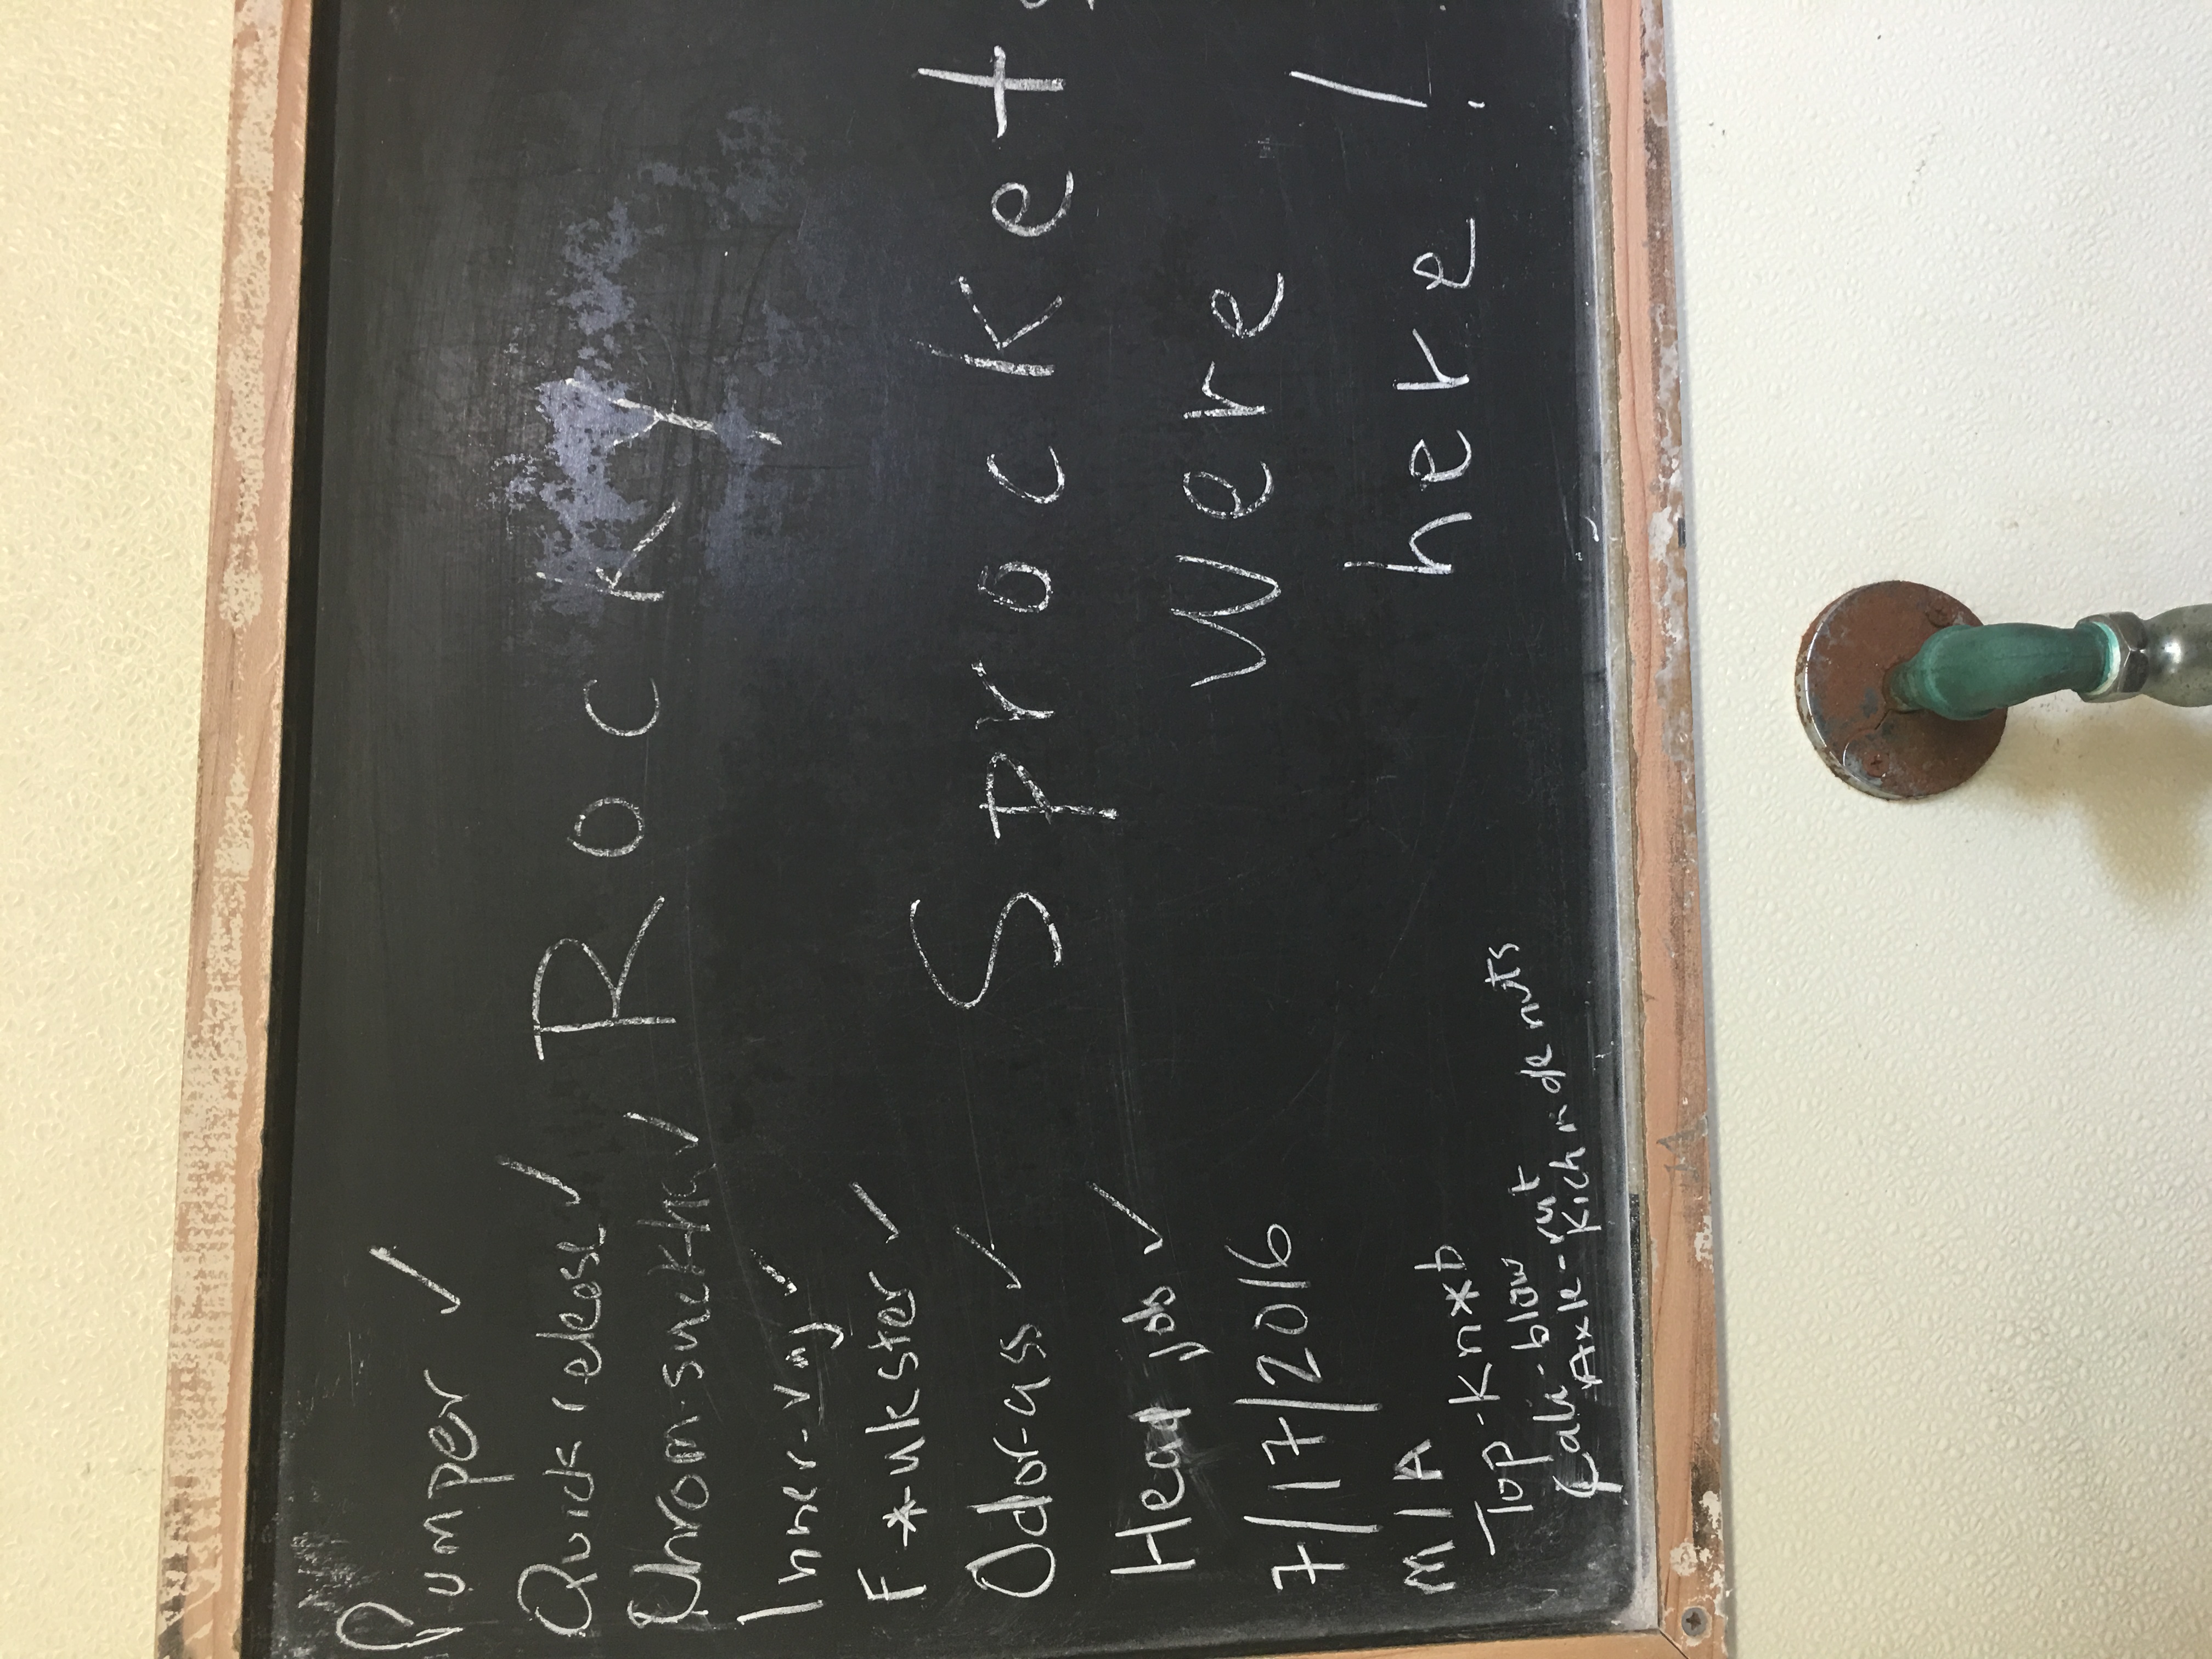 Pumper ✓
Quick release ✓
Chrom-suckher ✓
Inner-vaj ✓
F*-ukster ✓
Odor-ass ✓
Head job ✓
7/17/2016
MIA
Top-Kn*b
-blow nut
Axle-Kich m de nuts
Rocky
Sprockets
were
here!